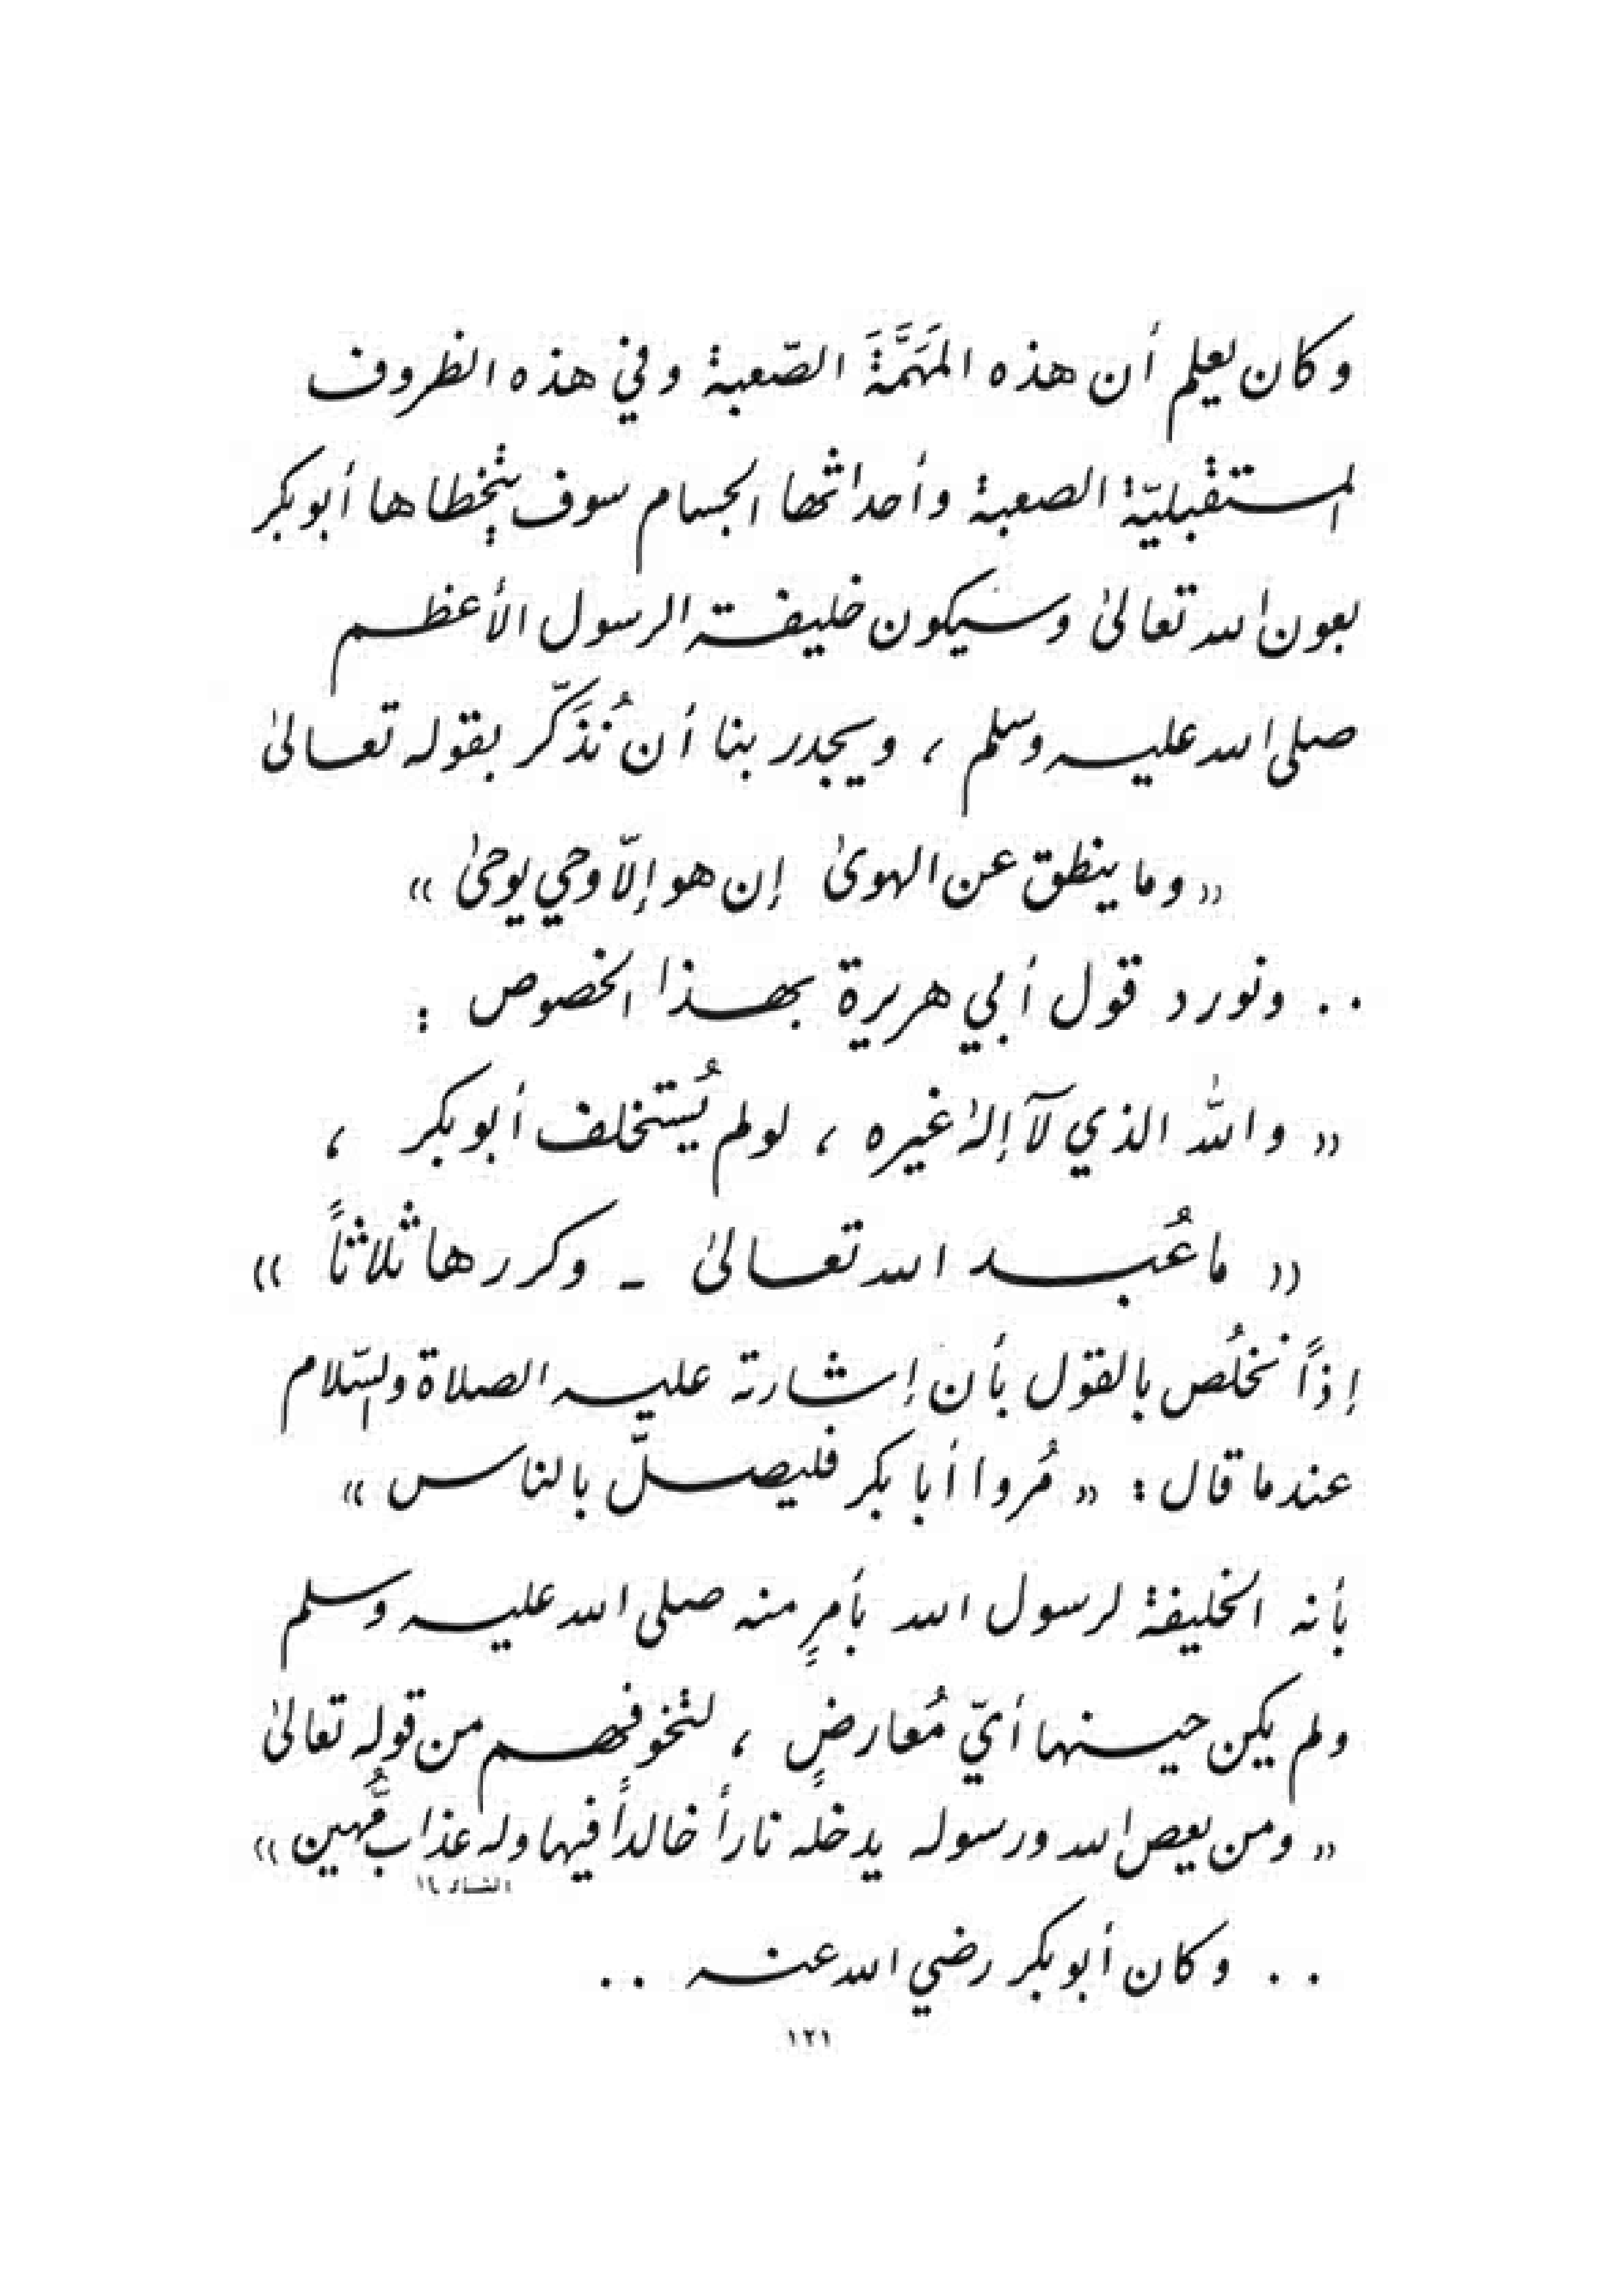 وكان يعلم أن هذه المَهَمَّةَ الصّعبة وفي هذه الظروف
المستقبليّة الصعبة وأحداثها الجسام سوف يتخطاها أبو بكر
بعون الله تعالىٰ وسيكون خليفة الرسول الأعظم
صلى الله عليه وسلم ، ويجدر بنا أن نُذَكّر بقوله تعالىٰ
« وما ينطق عن الهوىٰ إن هو إلّا وحي يوحىٰ »
.. ونورد قول أبي هريرة بهذا الخصوص :
« والله الذي لآ إلهٰ غيره ، لو لم يُستخلف أبو بكر ،
« ما عُبد الله تعالىٰ - وكررها ثلاثاً »
إذاً نخلُص بالقول بأن إشارته عليه الصلاة والسّلام
عندما قال : « مُروا أبا بكر فليصلّ بالناس »
بأنه الخليفة لرسول الله بأمرٍ منه صلى الله عليه وسلم
ولم يكن حينها أيّ مُعارضٍ ، لتخوفهم من قوله تعالىٰ
« ومن يعص الله ورسوله يدخله ناراً خالداً فيها وله عذابٌ مُّهين »
النساء ١٤
.. وكان أبو بكر رضي الله عنه ..
١٢١